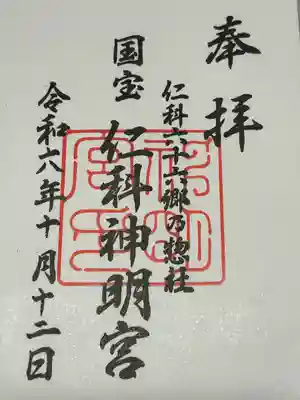 奉拝
仁科六十六郷乃惣社
国宝
仁科神明宮
令和六年十月十二日